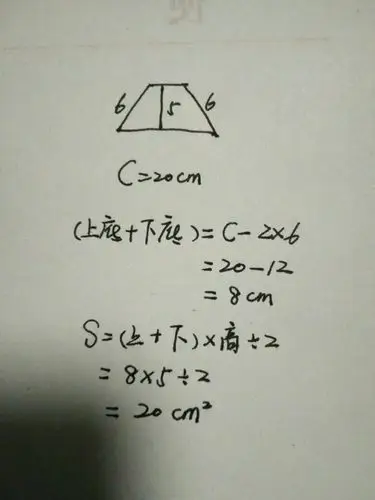 6 5 6
C=20cm
(上底+下底)=C-2×6
=20-12
=8cm
S=(上+下)×高÷2
=8×5÷2
=20cm²